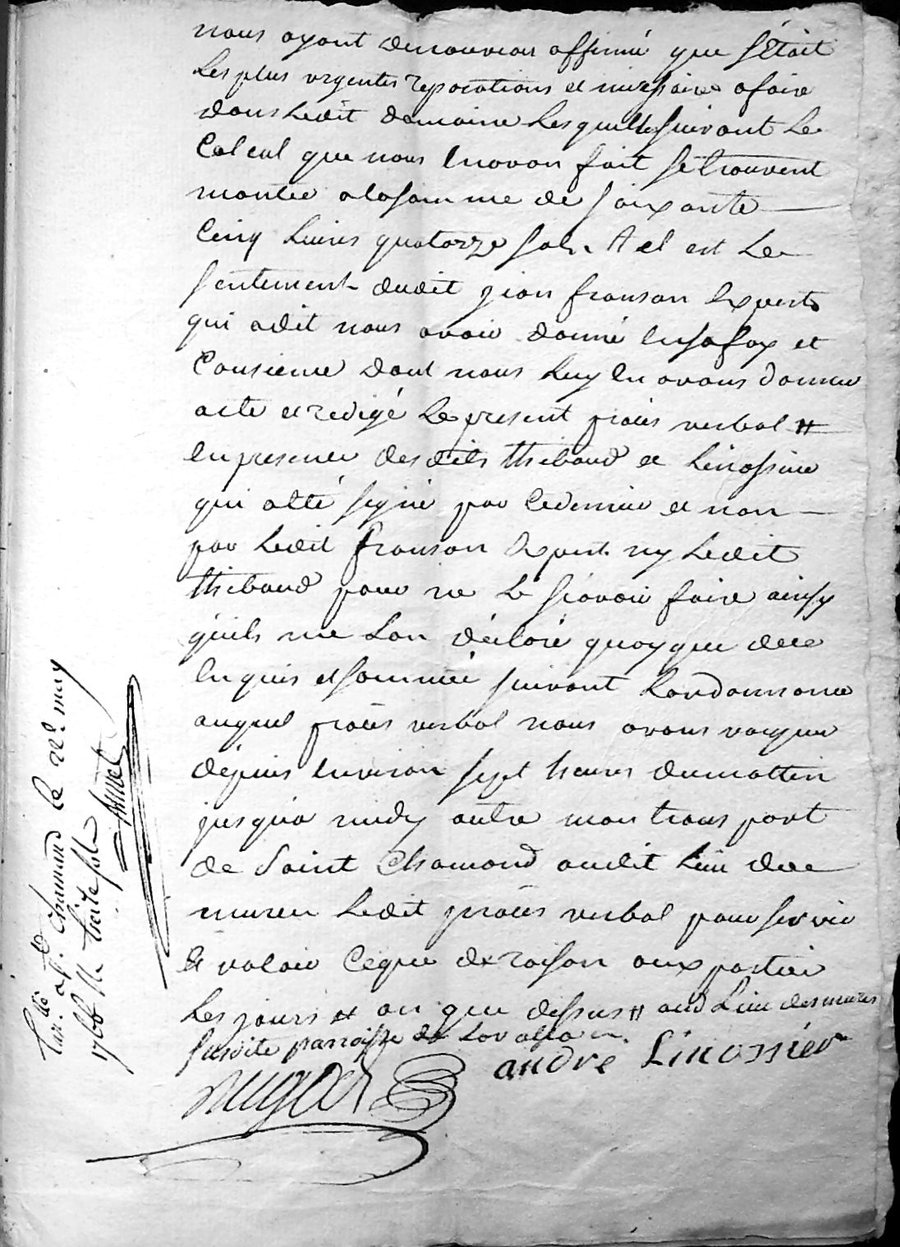 nous ayant denouveau affirmé que s'était
Les plus urgentes reparations et nécessaire afaire
dans Ledit domaine Lesquelles suivant Le
Calcul que nous en avon fait se trouvent
montée alasomme de soixante
Cinq Livres quatorze sols. Tel est Le
sentement dudit jean franson Expert
qui adit nous avoir donné ensafoy et
Consience dont nous Luy en avons donné
acte et redigé Le present proces verbal #
en presence desdits thibaud et Linossier
qui aété signé par Cedernier et non
par Ledit franson Expert ny Ledit
thibaud pour ne Le sçavoir faire ainsy
quils me Lon déclaré quoyque de ce
enquis et sommée suivant Lordonnance
auquel proces verbal nous avons vacque
dépuis environ sept heures dumattin
jusqua midy outre mon transport
de Saint Chamond audit Lieu de
mures Ledit procès verbal pour servir
et valoir ceque de raison aux partier
Les jours et an que dessus # aud Lieu des mures
susdite parroisse de Lavalla
andré Linossier
a St. Chamand le 22e may
1766 treize sols